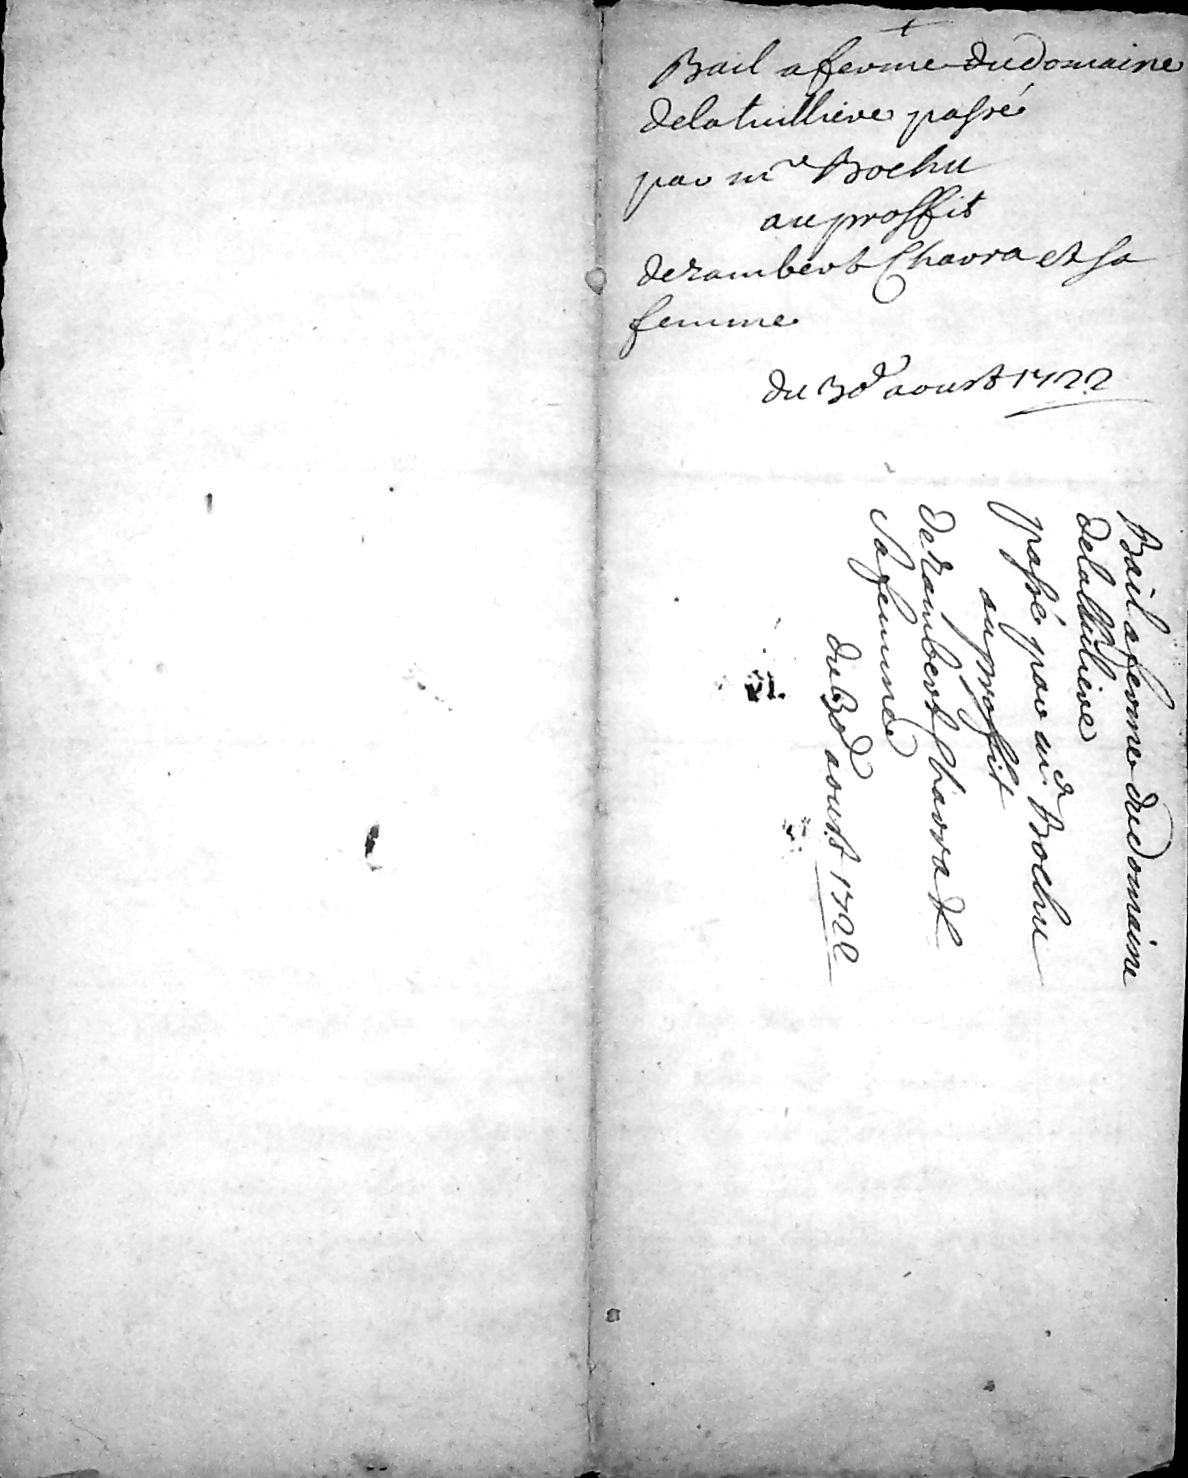 Bail a ferme du domaine
de la tuilliere passé
par mr Bochu
au proffit
de rambert Chavra et sa
femme
du 30e aoust 1722
Bail a ferme du domaine
de la thuiliere
passé par mr Bochu
au proffit
de rambert Chavra et
sa femme
du 30e aoust 1722